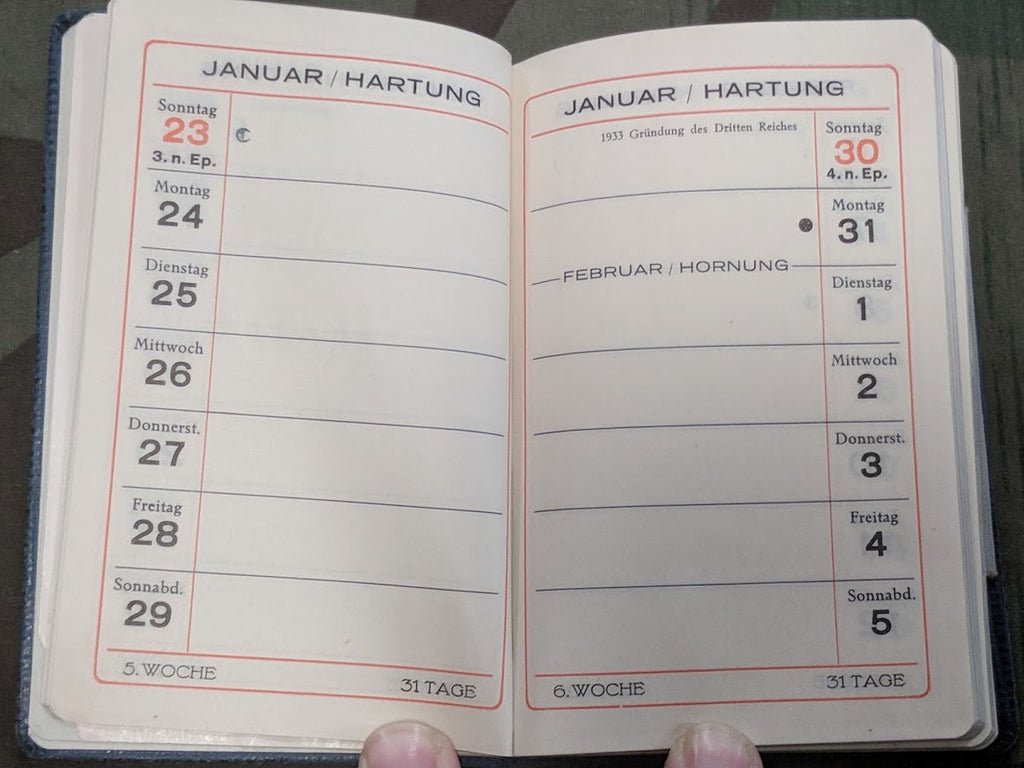 JANUAR / HARTUNG
Sonntag
23
3. n. Ep.
Montag
24
Dienstag
25
Mittwoch
26
Donnerst.
27
Freitag
28
Sonnabd.
29
5. WOCHE
31 TAGE
JANUAR / HARTUNG
1933 Gründung des Dritten Reiches
Sonntag
30
4. n. Ep.
Montag
31
FEBRUAR / HORNUNG
Dienstag
1
Mittwoch
2
Donnerst.
3
Freitag
4
Sonnabd.
5
6. WOCHE
31 TAGE